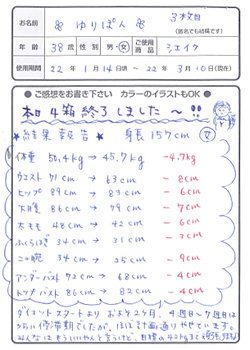 お名前 ※ ゆりぽん ※ 3枚目
(匿名でも結構です)
年齢 38歳 性別 男・女 ご使用商品 シェイク
使用期間 22年 1月14日頃 ~ 22年 3月10日(現在)
●ご感想をお書き下さい カラーのイラストもOK●
本日4箱終了しました〜!!
☆結果報告☆ 身長157cm
体重 50.4kg → 45.7kg -4.7kg
ウエスト 71cm → 63cm -8cm
ヒップ 89cm → 83cm -6cm
下腹 86cm → 79cm -7cm
太もも 48cm → 42cm -6cm
ふくらはぎ 34cm → 31cm -3cm
二の腕 → 25cm -9cm
アンダーバスト 72cm → 68cm -4cm
トップバスト 86cm → 82cm -4cm
ダイエットスタートより およそ2ヶ月、4週目〜7週目は
つらい停滞期でしたが、ほぼ計画通りやせています。
みんなはもういいやんと言うけど、目標の42kgまで頑張ります!